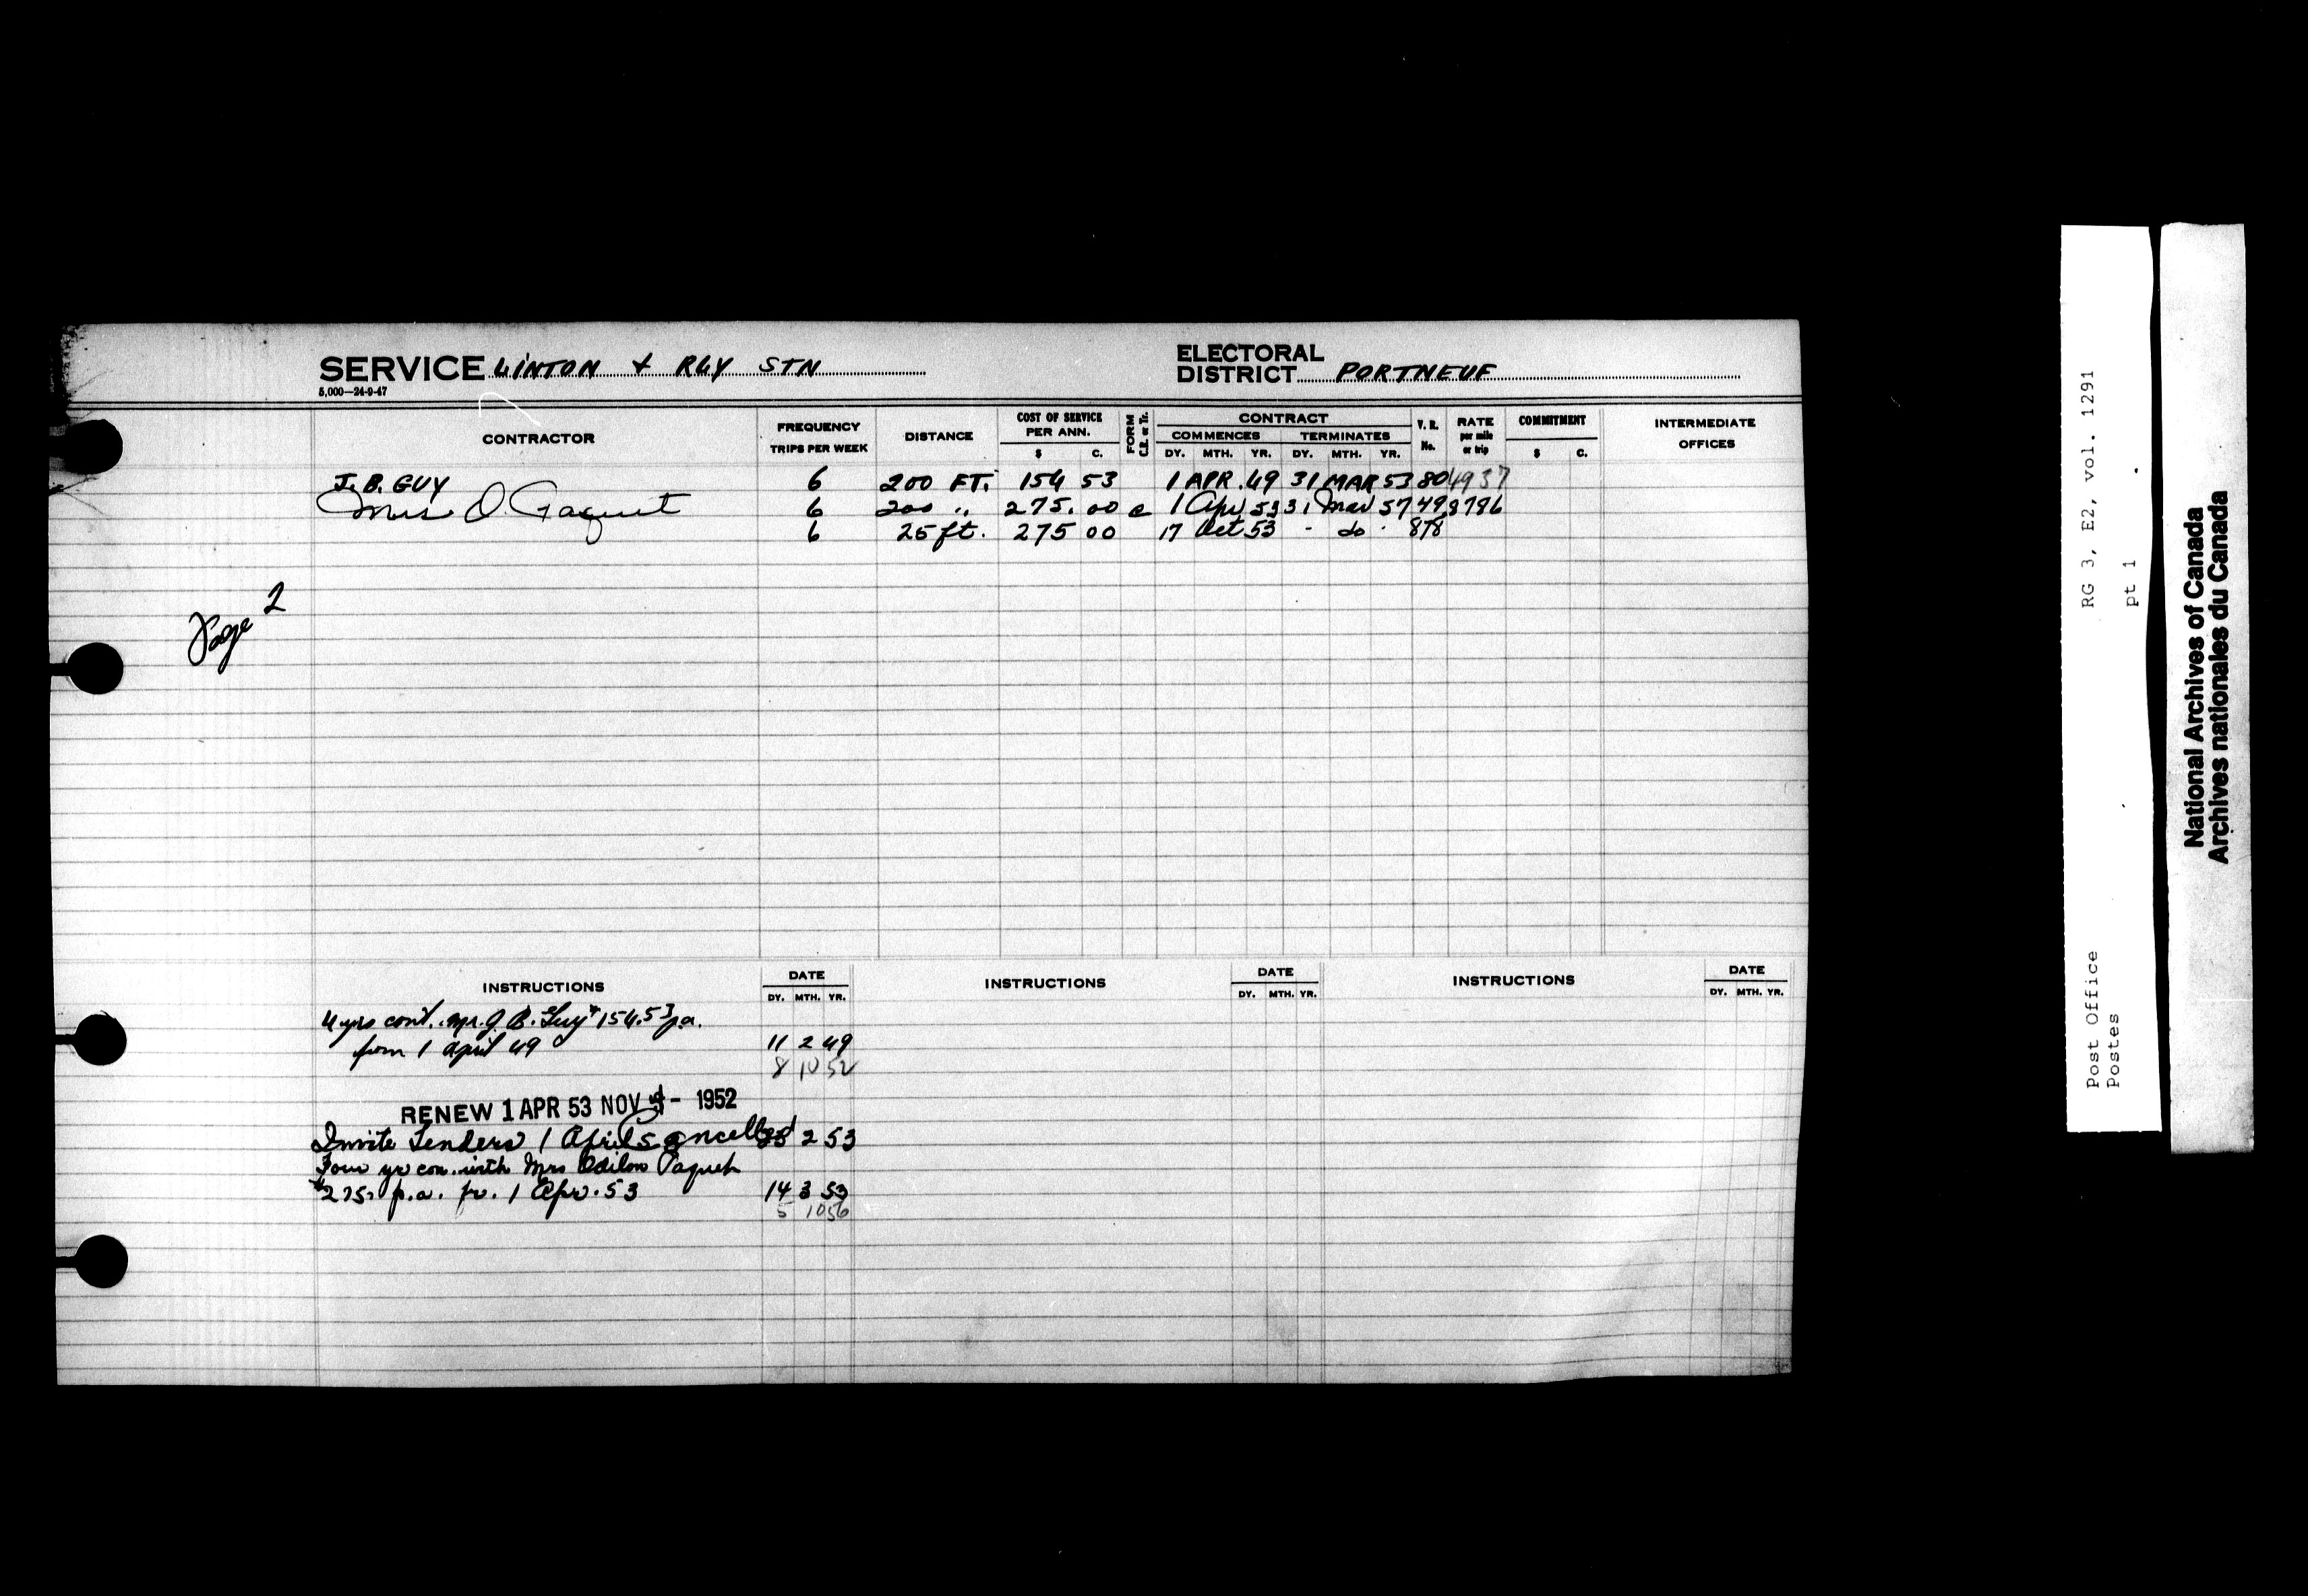 SERVICE LINTON & RLY STN
5,000—24-9-47
ELECTORAL
DISTRICT PORTNEUF
CONTRACTOR
FREQUENCY
TRIPS PER WEEK
DISTANCE
COST OF SERVICE
PER ANN.
$ C.
FORM
C.R. or Tr.
CONTRACT
COMMENCES TERMINATES
DY. MTH. YR. DY. MTH. YR.
V. R.
No.
RATE
per mile
or trip
COMMITMENT
$ C.
INTERMEDIATE
OFFICES
J. B. GUY 6 200 FT. 154 53 1 APR. 49 31 MAR 53 804937
Mrs O. Paquet 6 200 " 275.00 c 1 Apr 53 31 Mar 57 498796
6 25 ft. 275 00 17 Oct 53 - do - 878
Page 2
INSTRUCTIONS
DATE
DY. MTH. YR.
INSTRUCTIONS
DATE
DY. MTH. YR.
INSTRUCTIONS
DATE
DY. MTH. YR.
4 yrs cont. Mr. J. B. Guy $154.53 pa.
from 1 April 49 11 2 49
8 10 52
RENEW 1 APR 53 NOV - 1952
Cancelled
Invite Tenders 1 April 53 2 53
Four yr con. with Mrs Odilon Paquet
$275 p.a. fr. 1 Apr. 53 14 3 53
5 10 56
RG 3, E2, vol. 1291
pt 1
Post Office
Postes
National Archives of Canada
Archives nationales du Canada